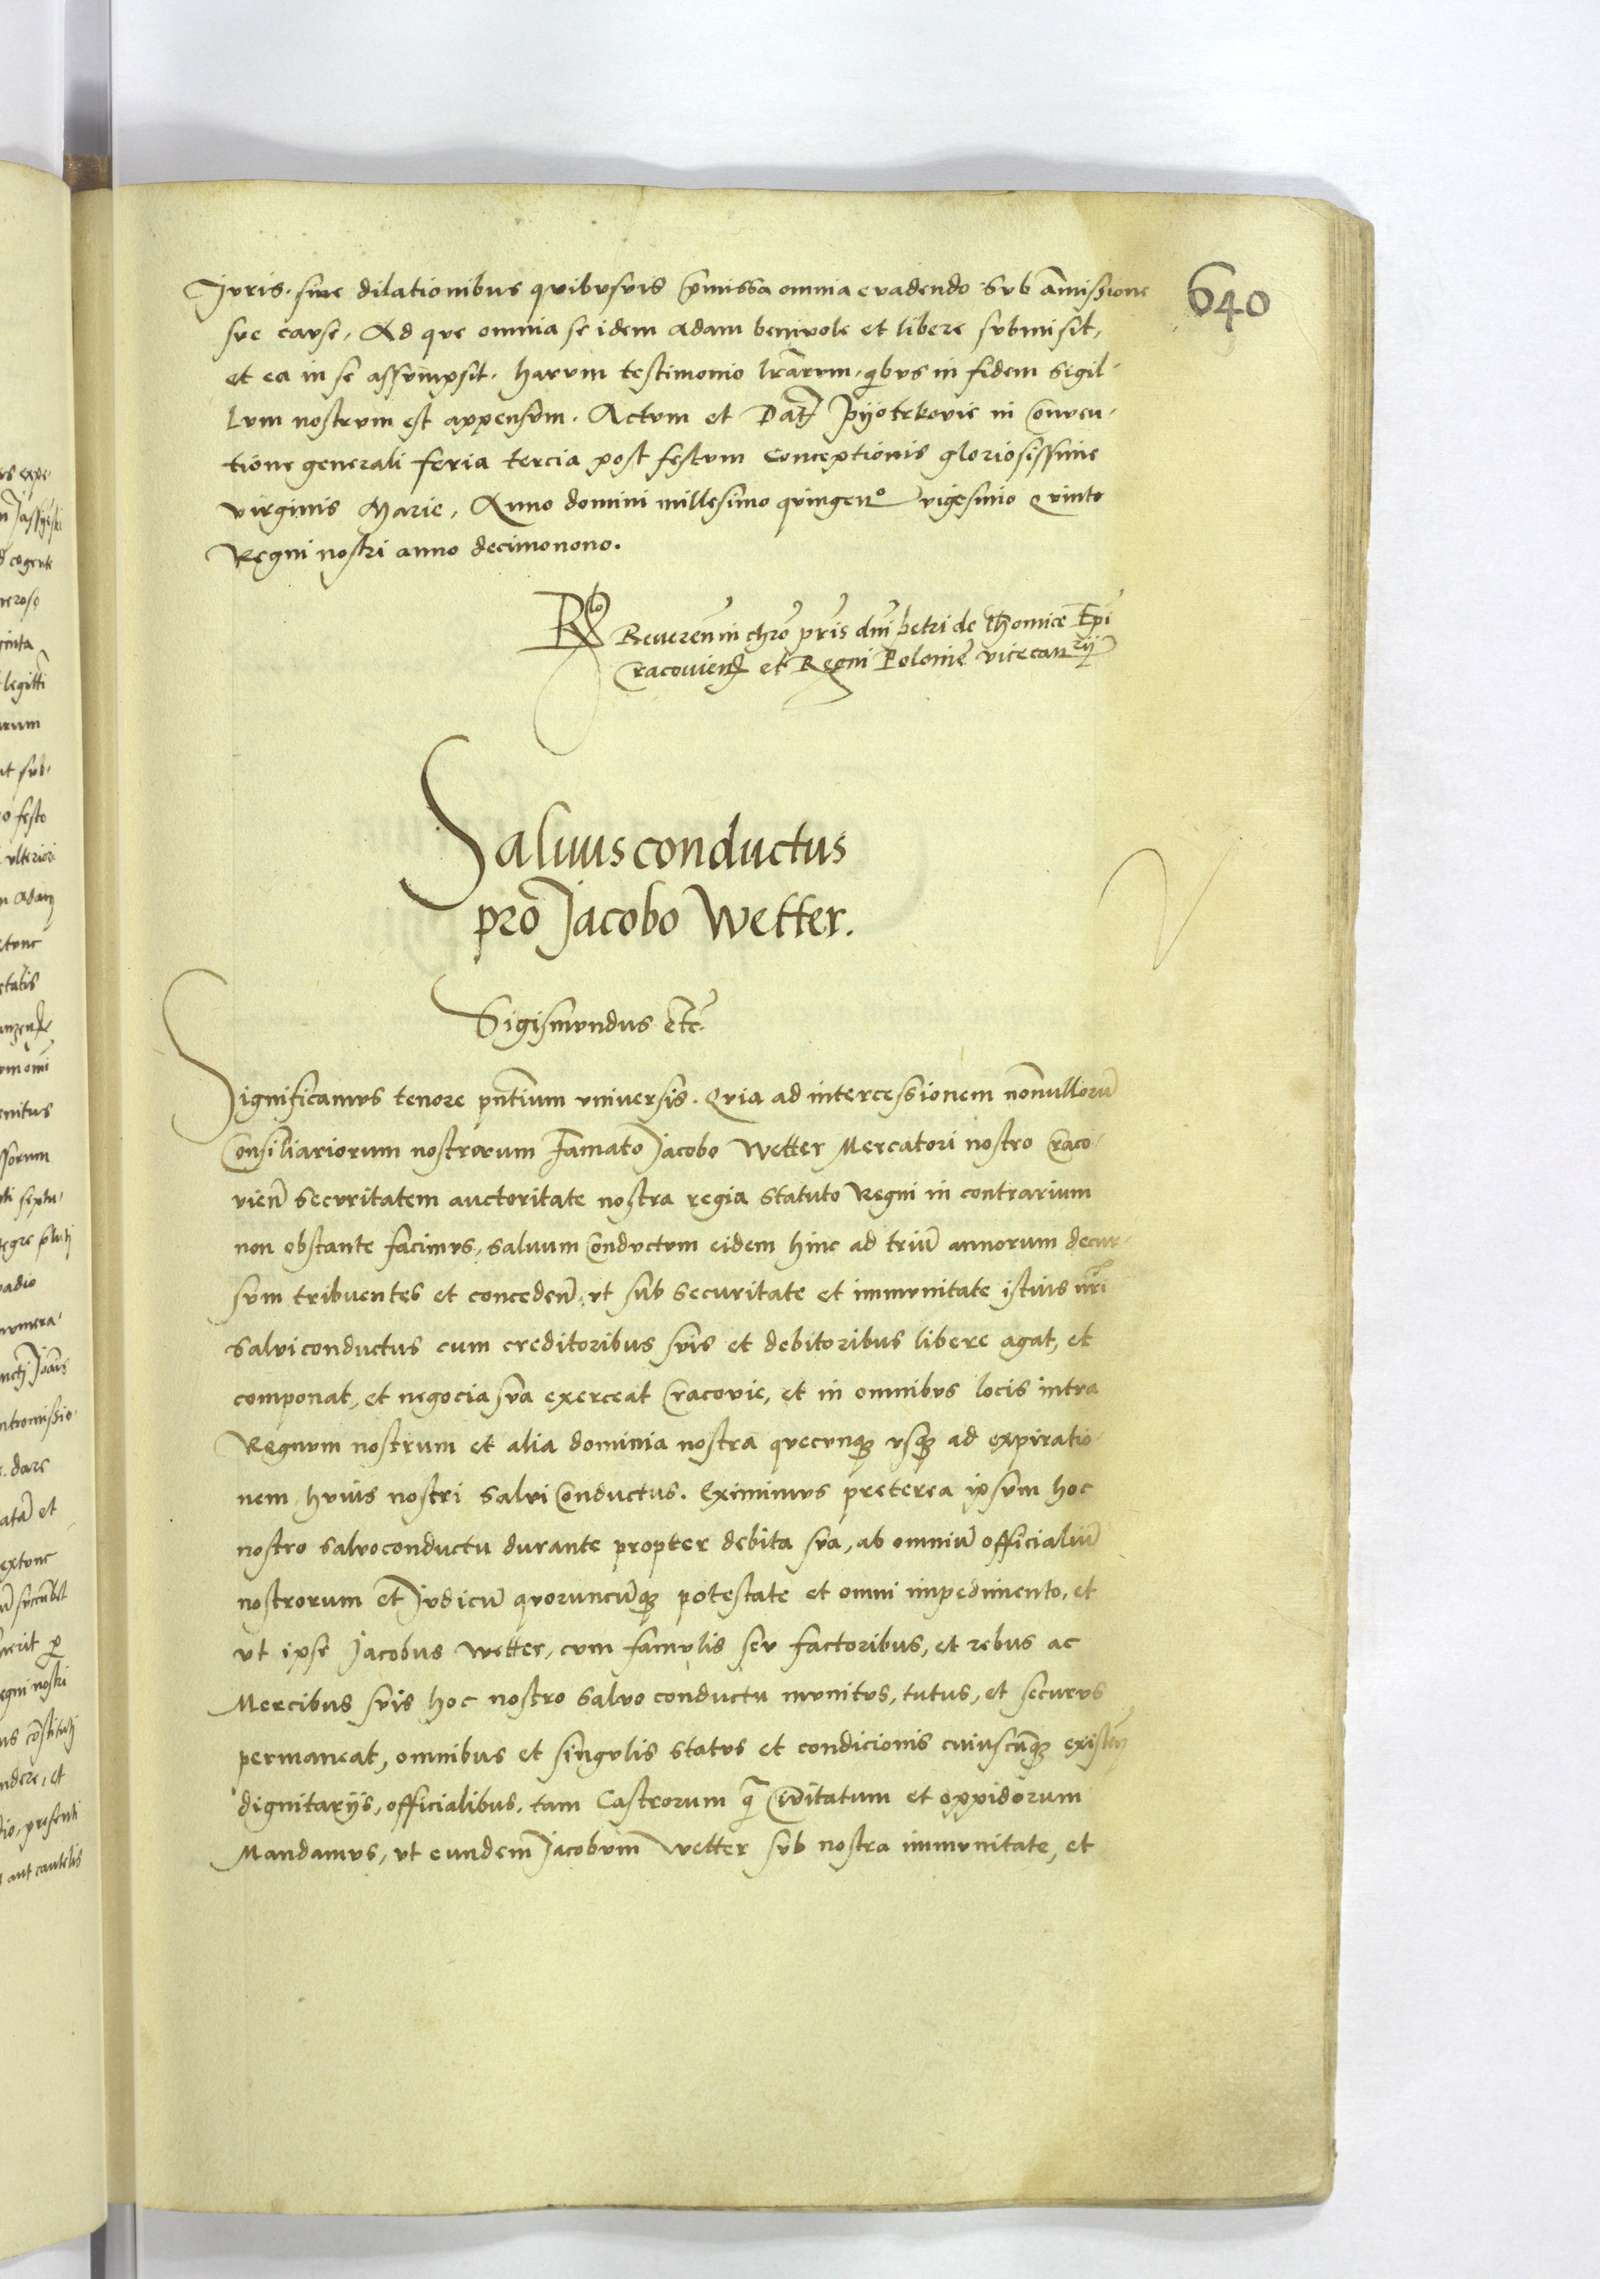 640
Juris. sine dilationibus quibusuis p̄missa omnia euadendo sub amissione
sue cause. Ad que omnia se idem Adam beniuole et libere submisit,
et ea in se assumpsit. Harum testimonio lr̄arum. q̄ibus in fidem sigil-
lum nostrum est appensum. Actum et Dat̄ Pyotrkouie in Conuen-
tione generali feria tercia post festum Conceptionis gloriosissime
virginis Marie, Anno domini millesimo quingen° vigesimo Quinto
Regni nostri anno decimonono.
Rlo Reueren̄ in chro pr̄is dn̄i Petri de Thomice Ep̄i
Cracouien̄ et Regni Polonie vicecanrij
Saluusconductus
pro Jacobo Wetter.
Sigismundus etc̄.
Significamus tenore pn̄tium vniuersis. Quia ad intercessionem nōnullorū
Consiliariorum nostrorum Famato Jacobo Wetter Mercatori nostro Craco-
uien̄ securitatem auctoritate nostra regia statuto Regni in contrarium
non obstante facimus, saluum Conductum eidem hinc ad triū annorum decur-
sum tribuentes et conceden̄, vt sub securitate et immunitate istius nr̄i
saluiconductus cum creditoribus suis et debitoribus libere agat, et
componat, et negocia sua exerceat Cracouie, et in omnibus locis intra
Regnum nostrum et alia dominia nostra quecunq₃ vsq₃ ad expiratio-
nem huius nostri salui Conductus. Eximimus preterea ipsum hoc
nostro saluoconductu durante propter debita sua, ab omniū officialiū
nostrorum et Judicū quoruncūq₃ potestate et omni impedimento, et
vt ipse Jacobus Wetter, cum famulis seu factoribus, et rebus ac
Mercibus suis hoc nostro saluo conductu munitus, tutus, et securus
permaneat, omnibus et singulis status et condicionis cuiuscūq₃ existen̄
dignitarijs, officialibus, tam Castrorum q̄ Ciuitatum et oppidorum
Mandamus, vt eundem Jacobum Wetter sub nostra immunitate, et